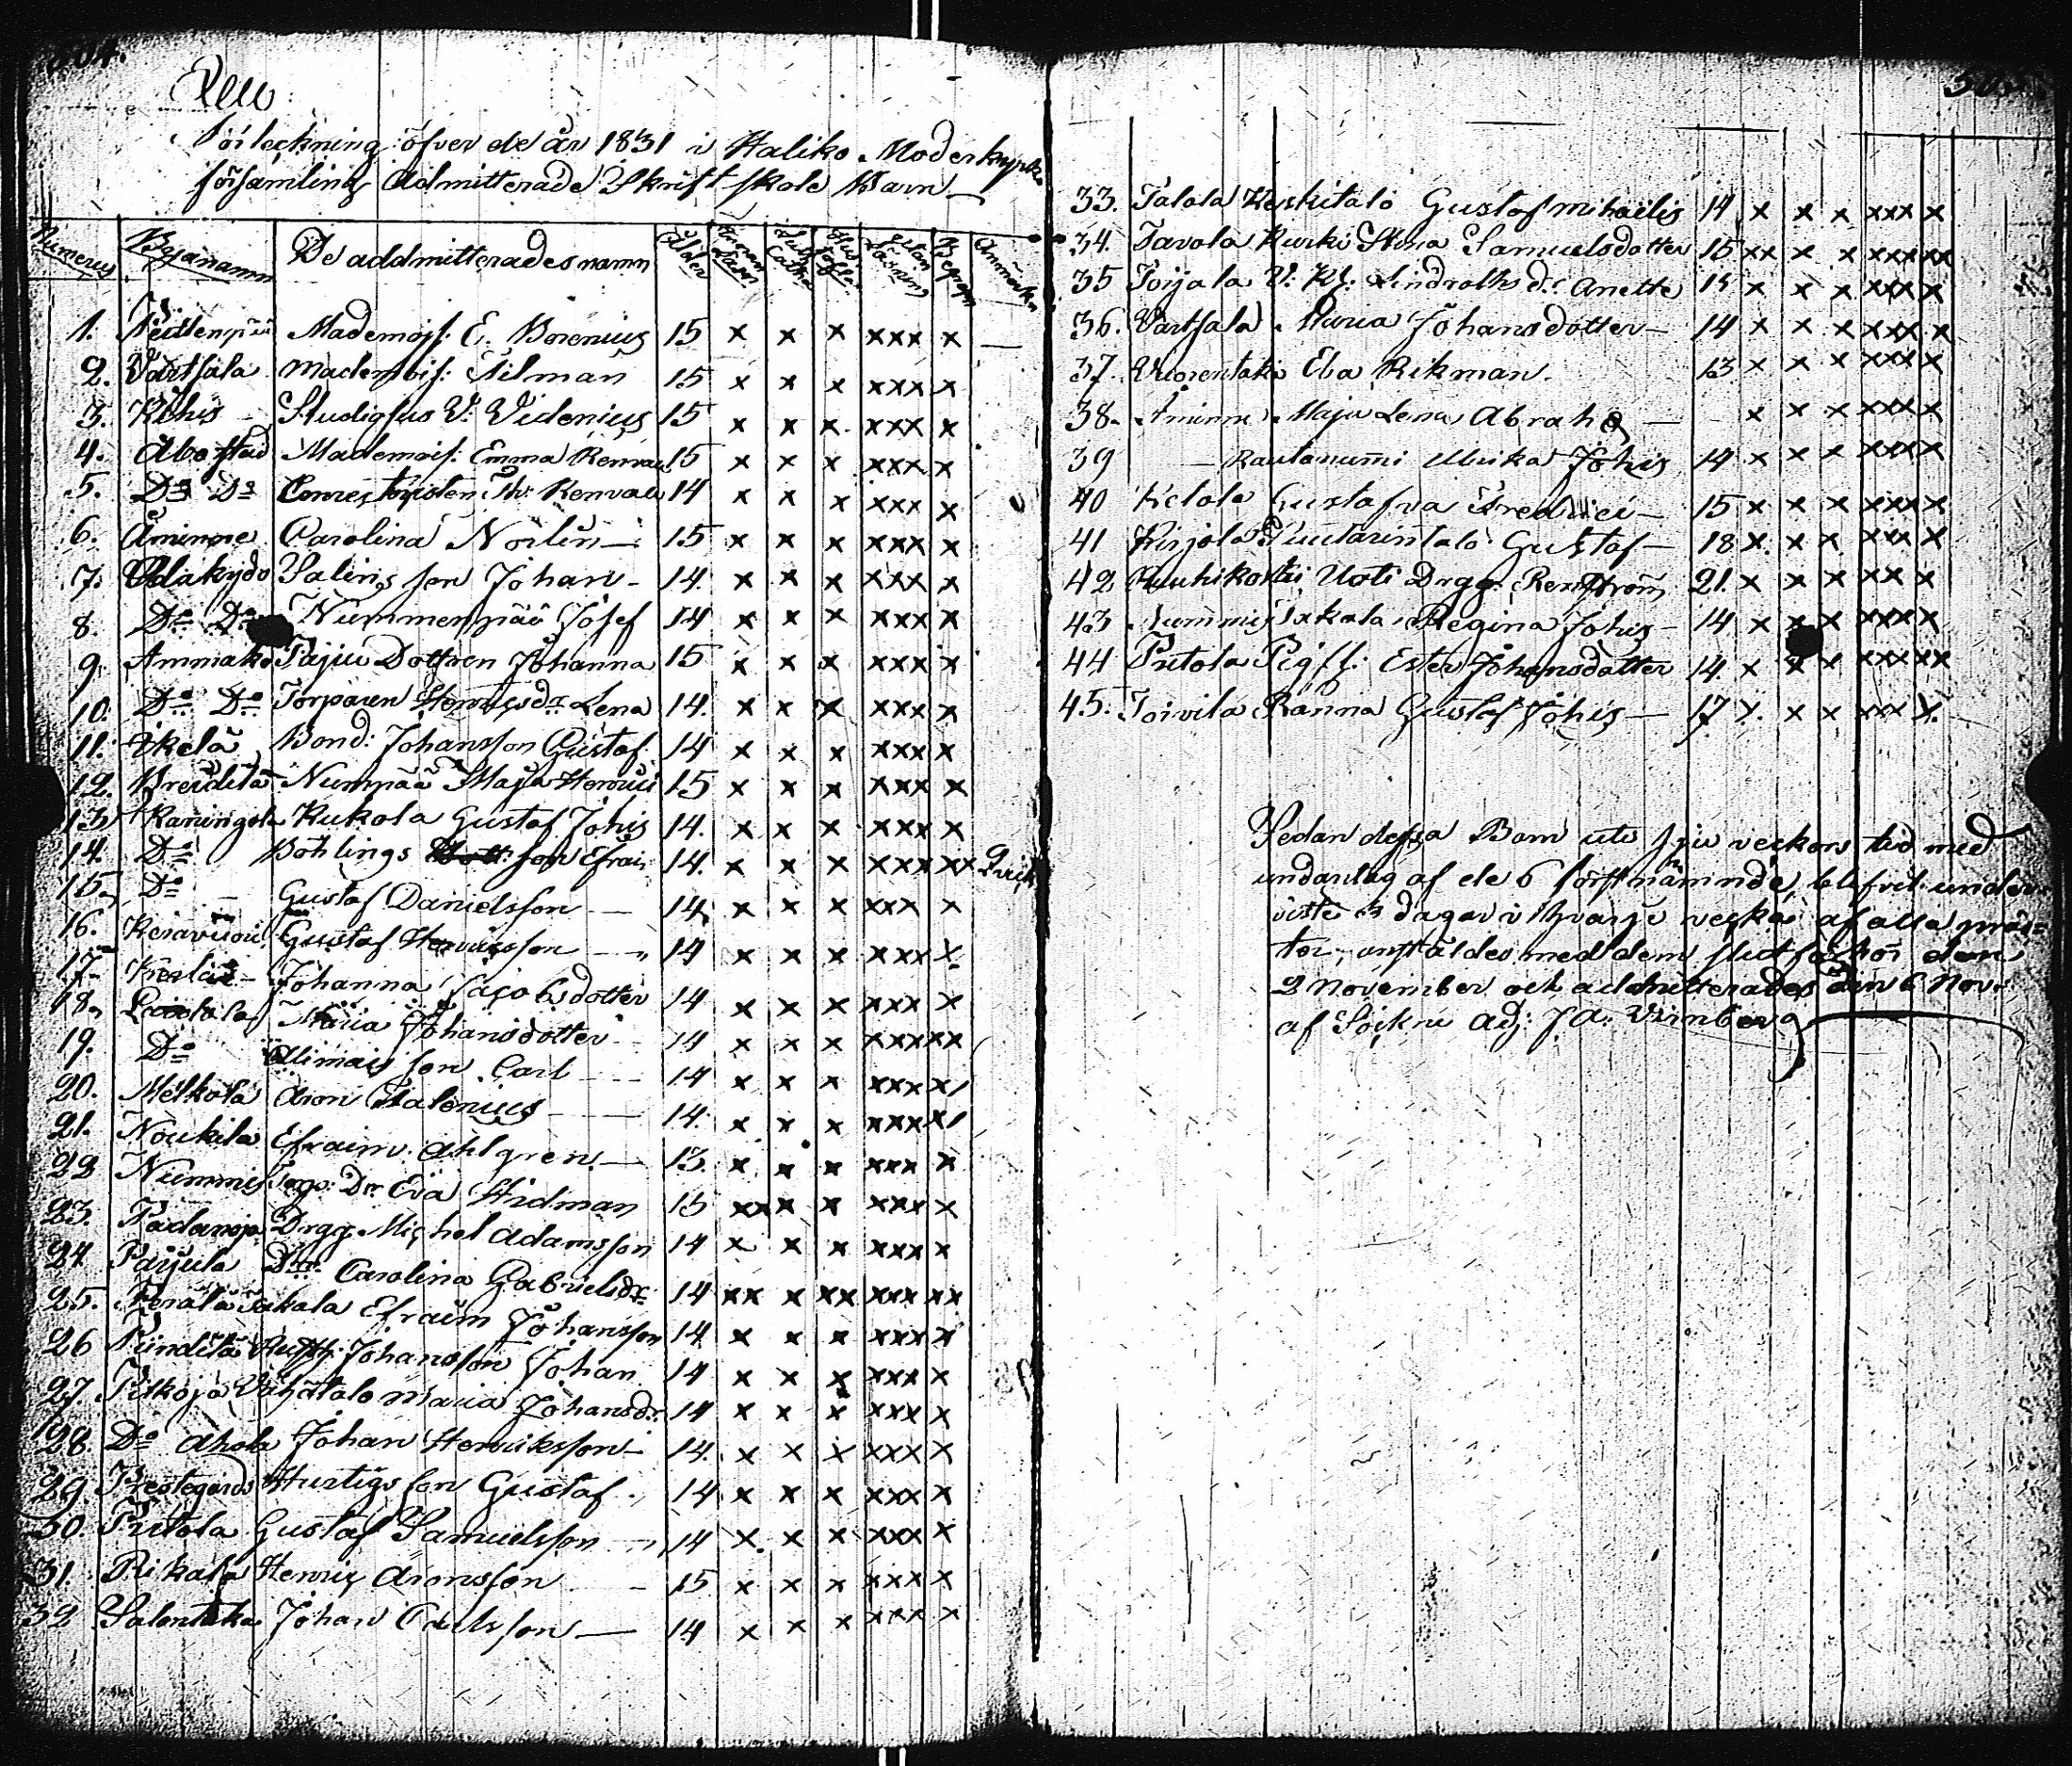 304.
Förteckning öfver de år 1831 i Haliko Moderkyrko
församling Admitterade Skriftskole Barn
Numerus Byanamn De addmitterades namn Ålder Anmärkn
1. Mademois: E. Borenius 15 x x x xxx x —
2. Vartsala Mademois: Tilman 15 x x x xxx x
3. Kihis Studiosus V: Videnius 15 x x x xxx x
4. Åbo stad Mademois: Emma Renvall 15 x x x xxx x
5. Do Do Renvall 14 x x x xxx x
6. Åminne Carolina Norlin — 15 x x x xxx x
7. Salins son Johan - 14. x x x xxx x
8. Do Do Nummenpää Josef 14 x x x xxx x
9. Ammako Paju Dottren Johanna 15 x x x xxx x
10. Do Do Torparen Henricsdr Lena 14. x x x xxx x
11. Ikelä Bond: Johansson Gustaf 14 x x x xxx x
12. Breidilä Numpää Maja Henrici 15 x x x xxx x
13 Kaningola Kukola Gustaf Johis 14. x x x xxx x
14. Do Böhlings son Efraim 14. x x x xxx xx
15. Do - Gustaf Danielsson — 14. x x x xxx x
16. Keravuori Gustaf Henricsson — " 14 x x x xxx x.
17. Johanna Jacobsdotter 14 x x x xxx x
18. Maria Johansdotter 14 x x x xxx xx
19. Do son Carl - - 14 x x x xxx x
20. Metkola Aron Salenius — 14. x x x xxx x
21. Noukila Efraim Ahlgren — 13. x x x xxx x
22 Nummis Torp: Dr Eva Hidman 15 xx x x xxx x
23. Drag. Michel Adamsson 14 x x x xxx x
24 Parjula Dtr Carolina Gabrielsdr 14 xx x xx xxx xx
25. Perälä Takala Efraim Johansson 14 x x x xxx x
26 Johansson Johan 14 x x x xxx x
27. Pitkoja Vähätalo Maria Johansdr. 14 x x x xxx x
28. Do Ahola Johan Henriksson - 14. x x x xxx x
29. Prestegårds Hurtigs son Gustaf. 14 x x x xxx x
30. Pritola Gustaf Samuelsson 14 x. x x xxx x
31. Rikala Henric Aronsson - 15 x x x xxx x
32 Salontaka Johan Carlsson — 14 x x x xxx x
33. Talola Keskitalo Gustaf Mihaelis 14 x x x xxx x
34. Tavola Kurki Stina Samuelsdotter 15 xx x x xxx xx
35 Toijala V: Kl: Lindroths dr: Anette 15 x x x xxx x
36. Vartsala Maria Johansdotter — 14 x x x xxx x
37. Vuorentaka Eva Rikman. 13 x x x xxx x
38. Åminne Maja Lena Abrah — x x x xxx x
39 — Rautanummi Ulrika Johis 14 x x x xxx x
40 Ketola Gustafva Fredrici — 15 x x x xxx x
41 Kirjola Puutarintalo Gustaf — 18 x. x x xxx x
42 Uoti Drag: Renström 21. x x x xx x
43 Nummis Takala Regina Johis — 14 x x x xxx x
44 Pritola Pig ff: Ester Johansdotter 14. x x x xxx xx
45. Toivila Ränna Gustaf Johis — 17 x. x x xxx x.
Sedan dessa Barn uti sju veckors tid med
undantag af de 6 förstnämnde, blifvit under-
viste 3 dagar i hvarje vecka af alla präs=
ter, anstäldes med dem slutförhör den
2 November och admitterades den 6 Nov:
af Sockne Adj: J A: Virnberg